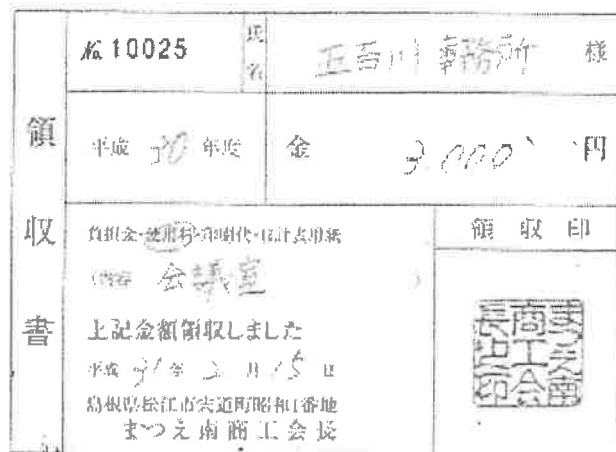 領収書
№10025
氏名
五百川事務所 様
平成 30 年度
金 3,000 円
負担金・使用料・印刷代・日計表用紙
(内容 会議室 )
上記金額領収しました
平成 31 年 2 月 15 日
島根県松江市宍道町昭和1番地
まつえ南商工会長
領収印
まつえ南商工会長之印